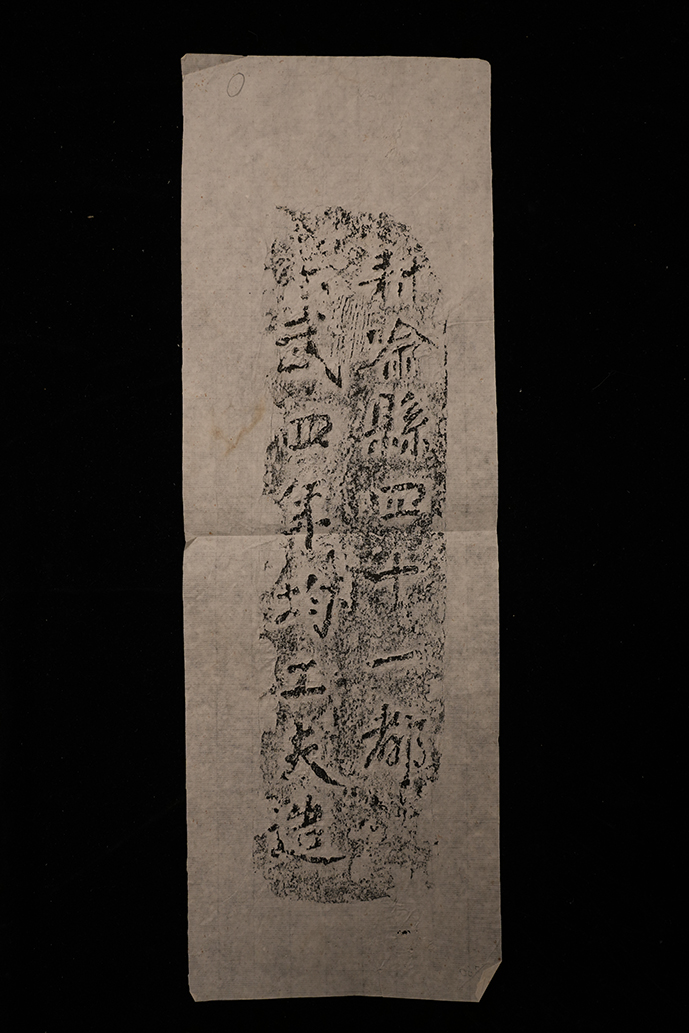 新喻縣四十一都
洪武四年均工夫造